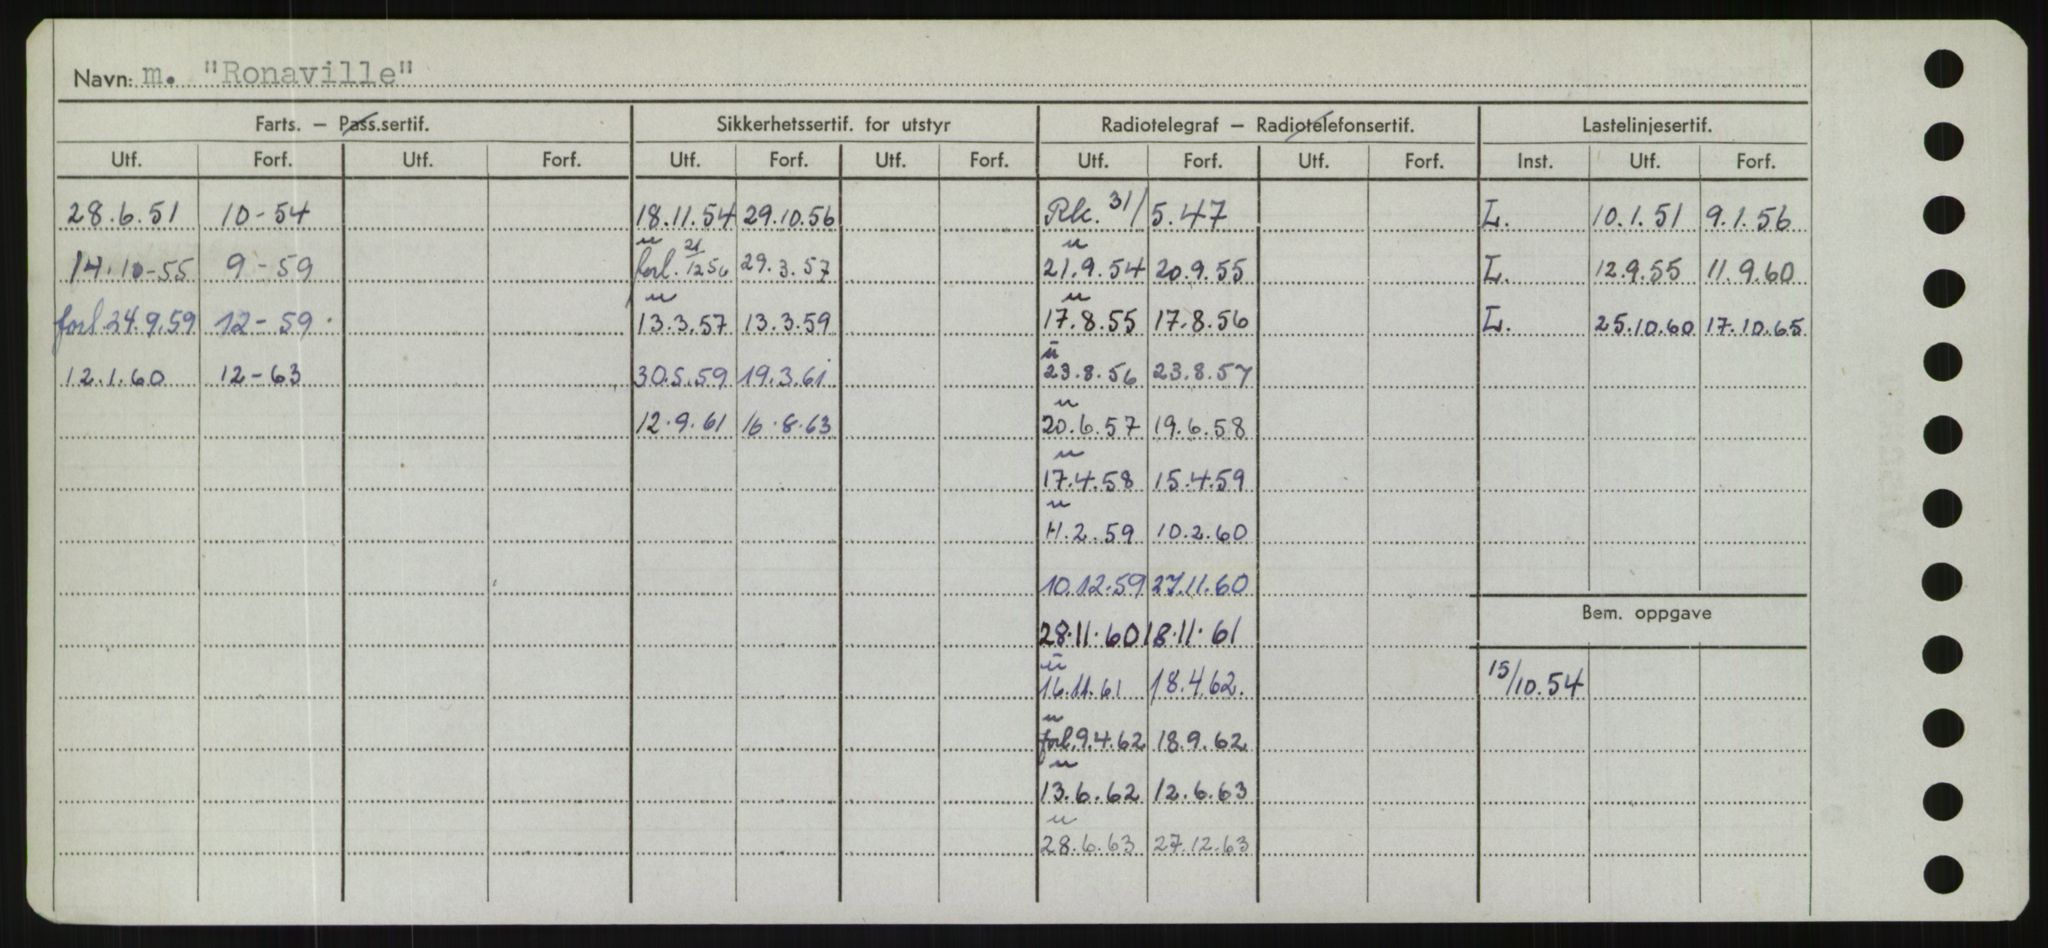 Navn: m. "Ronaville"
Farts. — Pass.sertif. Sikkerhetssertif. for utstyr Radiotelegraf — Radiotelefonsertif. Lastelinjesertif.
Utf. Forf. Utf. Forf. Utf. Forf. Utf. Forf. Utf. Forf. Utf. Forf. Inst. Utf. Forf.
28.6.51 10-54 18.11.54 29.10.56 Rk. 31/5.47 L. 10.1.51 9.1.56
u u
14.10-55 9-59 forl. 21/12 56 29.3.57 21.9.54 20.9.55 L. 12.9.55 11.9.60
u u
forl. 24.9.59 12-59 13.3.57 13.3.59 17.8.55 17.8.56 L. 25.10.60 17.10.65
u
12.1.60 12-63 30.5.59 19.3.61 23.8.56 23.8.57
u
12.9.61 16.8.63 20.6.57 19.6.58
u
17.4.58 15.4.59
u
11.2.59 10.2.60
10.12.59 27.11.60
Bem. oppgave
28.11.60 18.11.61
u
16.11.61 18.4.62. 15/10.54
u
forl. 9.4.62 18.9.62
u
13.6.62 12.6.63
u
28.6.63 27.12.63